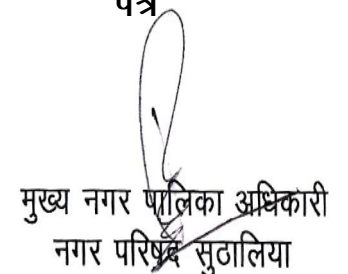 पत्र
मुख्य नगर पालिका अधिकारी
नगर परिषद सुठालिया